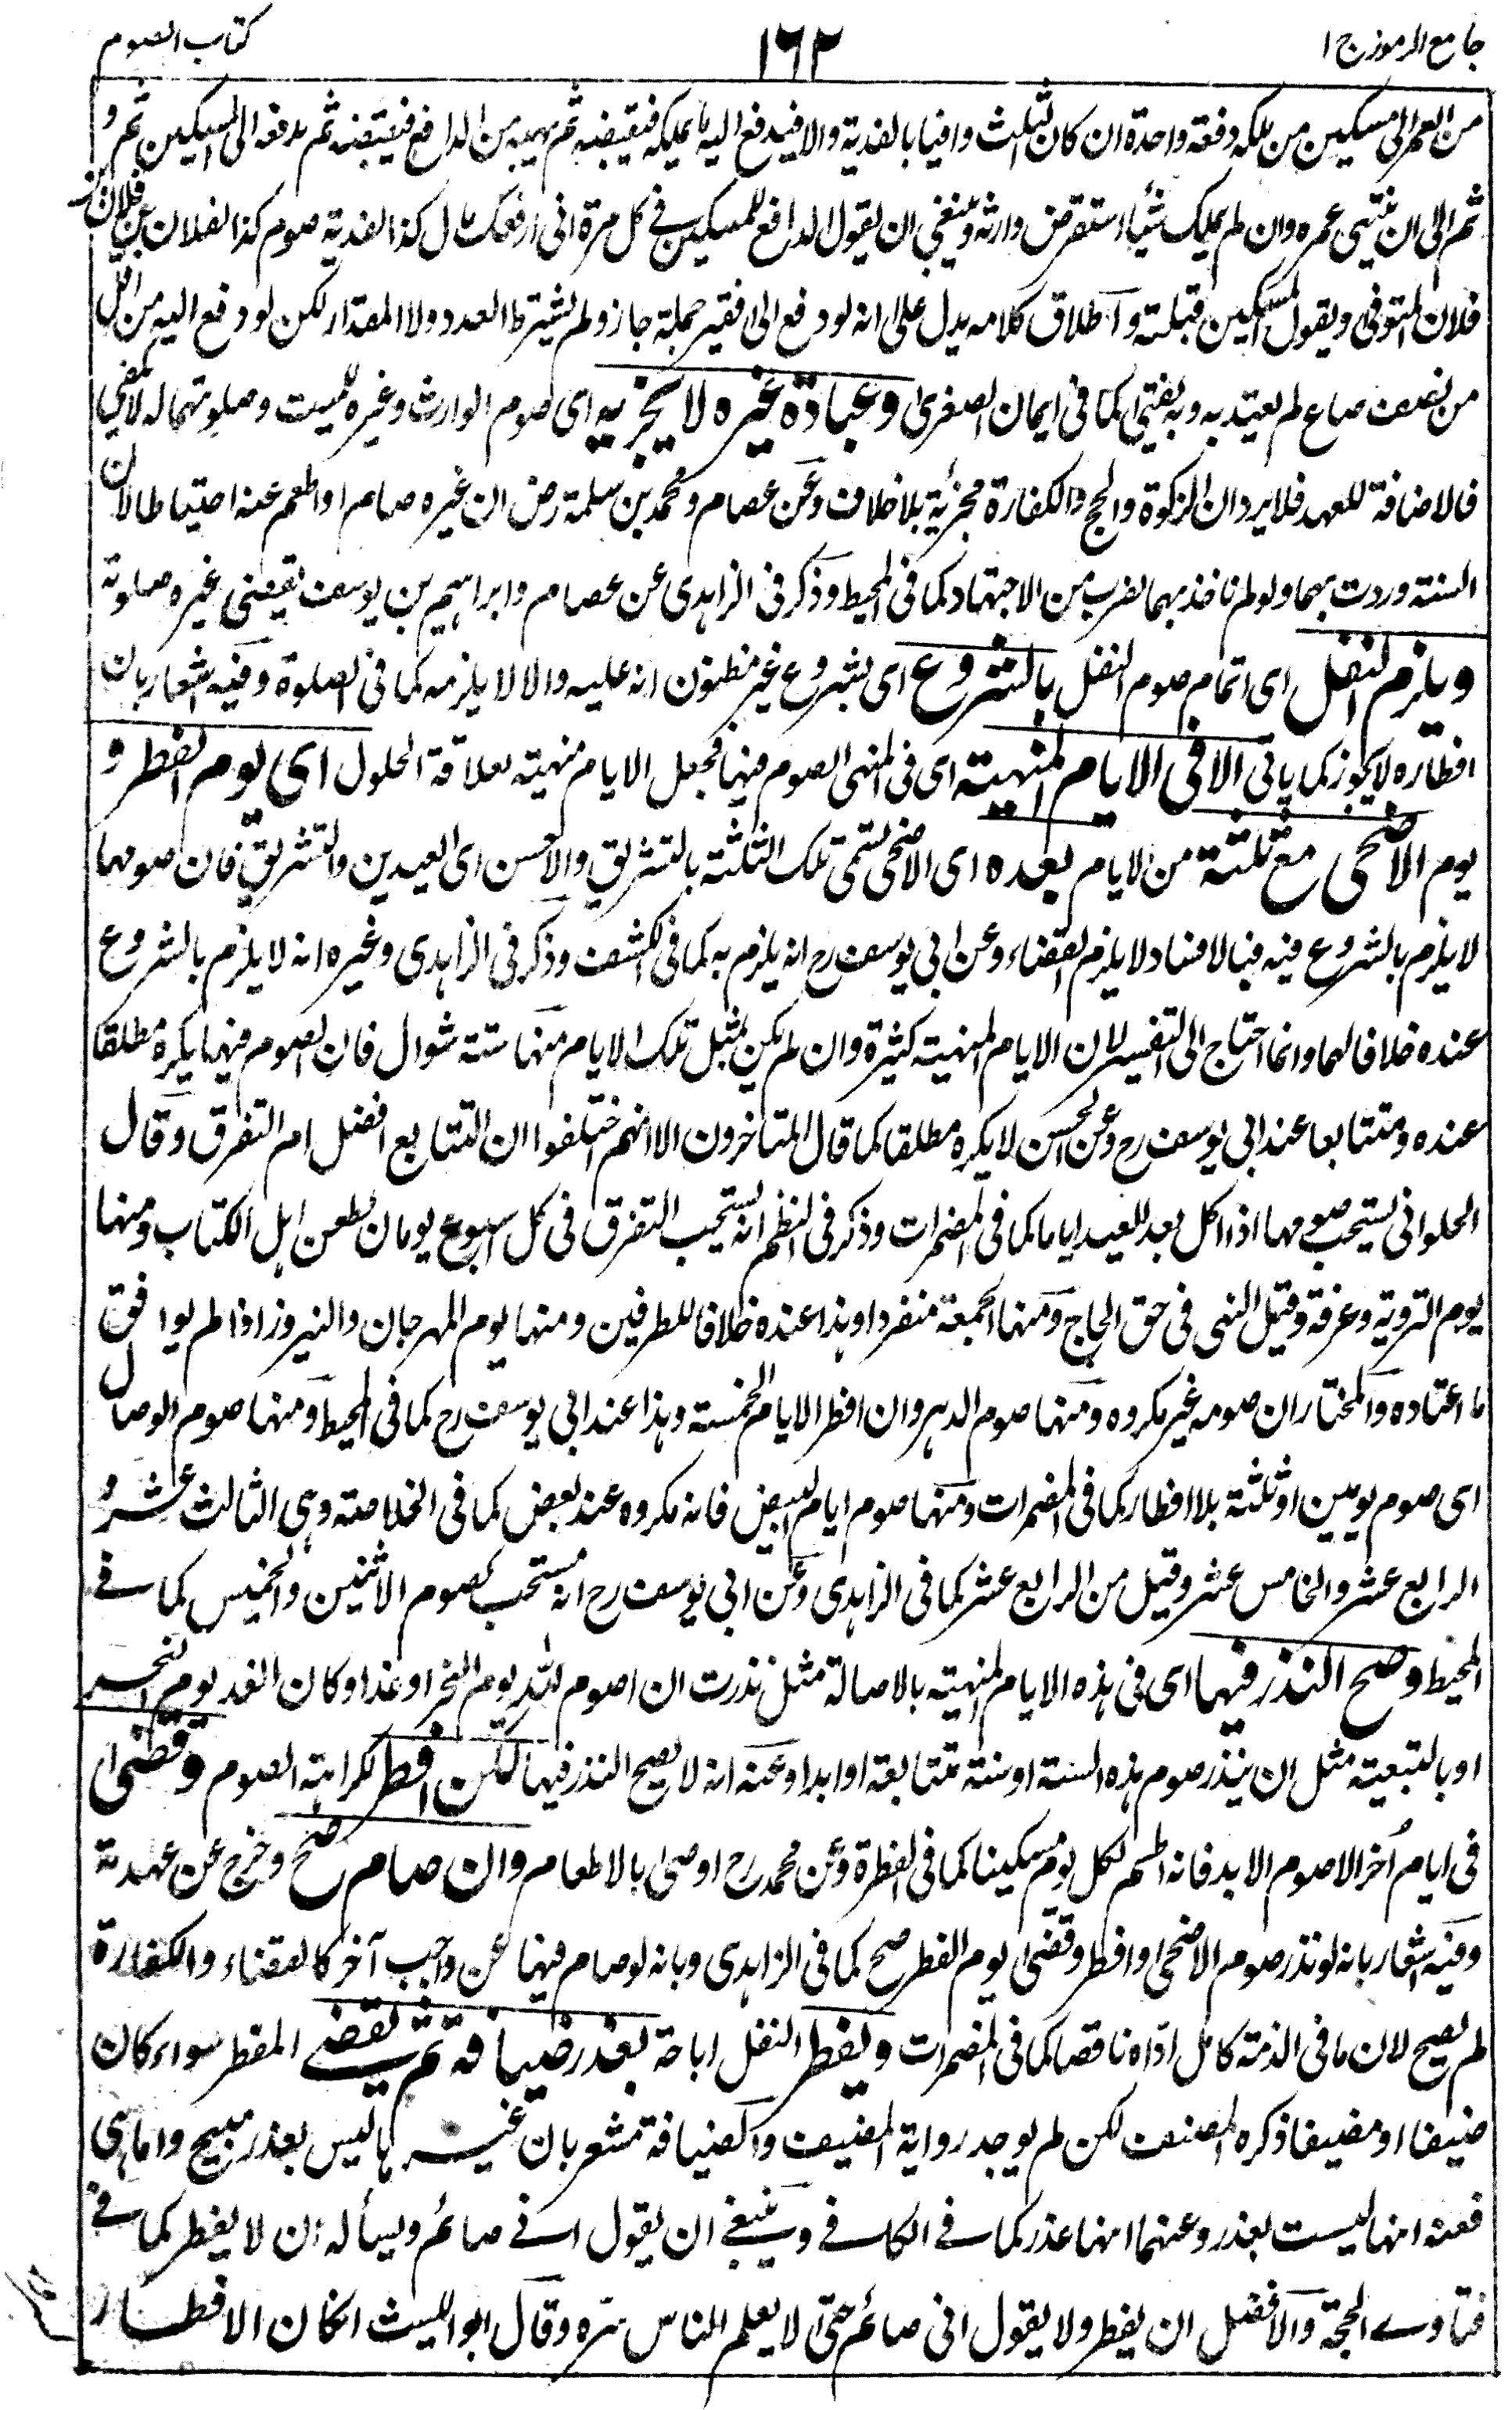 جامع الرموز ج ١
١٦٢
كتاب الصوم
من العمر الى مسكين من ملكه دفعة واحدة ان كان الثلث وافيا بالفدية والا فيدفع اليه ما يملكه فيقبضه ثم يهبه من الدافع فيقبضه ثم يدفعه الى المسكين ثم و
ثم الى ان ينتهى عمره وان لم يملك شيئا استقرض وارثه وينبغي ان يقول الدافع للمسكين في كل مرة اني ادفعك مال كذا لفدية صوم كذا لفلان بن فلان بن
فلان المتوفى ويقول المسكين قبلته واطلاق كلامه يدل على انه لو دفع الى فقير جملة جاز ولم يشترط العدد ولا المقدار لكن لو دفع اليه من اقل
من نصف صاع لم يعتد به وبه يفتى كما في ايمان الصغرى وعبادة غيره لا يجزيه اى صوم الوارث وغيره للميت وصلوتهما له لا تكفي
فالاضافة للعهد فلا يرد ان الزكوة والحج والكفارة مجزئة بلا خلاف وعن عصام ومحمد بن سلمة رض ان غيره صام او اطعم عنه احتياطا لان
السنة وردت بهما ولو لم ناخذ بهما لضرب من الاجتهاد كما في المحيط وذكر في الزاهدى عن عصام وابراهيم بن يوسف يقضى غيره صلوته
ويلزم النفل اى اتمام صوم النفل بالشروع اى بشروع غير مظنون انه عليه والا لا يلزمه كما في الصلوة وفيه اشعار بان
افطاره لا يجوز كما ياتى الا في الايام المنهية اى فى المنهى الصوم فيها فجعل الايام منهية لعلاقة الحلول اى يوم الفطر و
يوم الاضحى مع ثلثة من الايام بعده اى الاضحى يسمى تلك الثلثة بالتشريق والاحسن اى العيدين والتشريق فان صومها
لا يلزم بالشروع فيه فبالافساد لا يلزم القضاء وعن ابي يوسف رح انه يلزم به كما في الكشف وذكر في الزاهدى وغيره انه لا يلزم بالشروع
عنده خلافا لهما وانما احتاج الى التفسير لان الايام المنهية كثيرة وان لم يكن بمثل تلك الايام منها ستة شوال فان الصوم فيها يكره مطلقا
عنده ومتتابعا عند ابي يوسف رح وعن الحسن لا يكره مطلقا كما قال المتاخرون الا انهم اختلفوا ان التتابع افضل ام التفرق وقال
الحلوانى يستحب صومها اذا اكل بعد العيد اياما كما في المضمرات وذكر في النظم انه يستحب التفرق في كل اسبوع يومان لطعن اهل الكتاب ومنها
يوم التروية وعرفة وقيل النهى في حق الحاج ومنها الجمعة منفردا وهذا عنده خلافا للطرفين ومنها يوم المهرجان والنيروز اذا لم يوافق
ما اعتاده والمختار ان صومه غير مكروه ومنها صوم الدهر وان افطر الايام الخمسة وهذا عند ابي يوسف رح كما في المحيط ومنها صوم الوصال
اى صوم يومين او ثلثة بلا افطار كما في المضمرات ومنها صوم ايام البيض فانه مكروه عند بعض كما في الخلاصة وهى الثالث عشر و
الرابع عشر والخامس عشر وقيل من الرابع عشر كما في الزاهدى وعن ابي يوسف رح انه مستحب كصوم الاثنين والخميس كما في
المحيط وصح النذر فيها اى في هذه الايام المنهية بالاصالة مثل نذرت ان اصوم لله يوم النحر او غدا وكان الغد يوم النحر
او بالتبعية مثل ان ينذر صوم هذه السنة او سنة متتابعة او ابدا وعنه انه لا يصح النذر فيها لكن افطر لكراهة الصوم وقضى
في ايام اخر الا صوم الابد فانه اطعم لكل يوم مسكينا كما في الفطرة وعن محمد رح اوصى بالاطعام وان صام صح وخرج عن عهدته
وفيه اشعار بانه لو نذر صوم الاضحى وافطر وقضى يوم الفطر صح كما في الزاهدى وبانه لو صام فيها عن واجب آخر كالقضاء والكفارة
لم يصح لان ما في الذمة كامل اداه ناقصا كما في المضمرات ويفطر النفل اباحة بعذر ضيافة ثم يقضى المفطر سواء كان
ضيفا او مضيفا ذكره المصنف لكن لم يوجد رواية المضيف والضيافة مشعر بان غيرها ليس بعذر مبيح واما هى
فعنه انها ليست بعذر وعنهما انها عذر كما في الكافي وينبغي ان يقول انى صائم ويسأله ان لا يفطر كما في
فتاوى الحجة والافضل ان يفطر ولا يقول انى صائم حتى لا يعلم الناس سره وقال ابو الليث ان كان الافطار